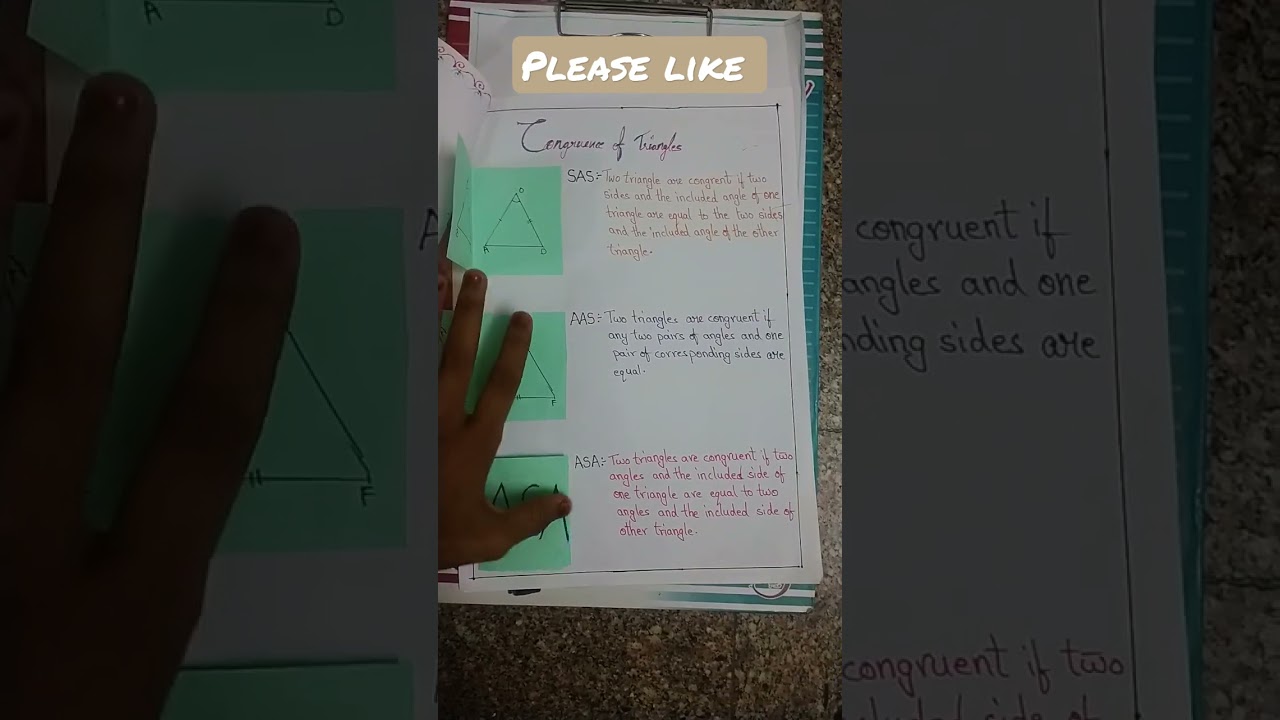 PLEASE LIKE
Congruence of Triangles
SAS:- Two triangle are congrent if two
sides and the included angle of one
triangle are equal to the two sides
and the included angle of the other
triangle.
O
A
D
AAS:- Two triangles are congruent if
any two pairs of angles and one
pair of corresponding sides are
equal.
F
ASA:- Two triangles are congruent if two
angles and the included side of
one triangle are equal to two
angles and the included side of
other triangle.
ASA
A
D
F
A
congruent if
angles and one
nding sides are
congruent if two